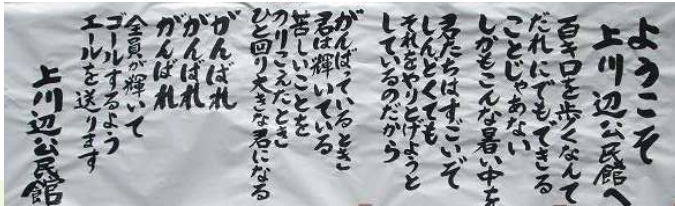 ようこそ
上川辺公民館へ
百キロを歩くなんて
だれにでもできる
ことじゃあない
しかもこんな暑い中を
君たちはすごいぞ
しんどくても
それをやりとげようと
しているのだから
がんばっているとき
君は輝いている
苦しいことを
のりこえたとき
ひと回り大きな君になる
がんばれ
がんばれ
がんばれ
全員が輝いて
ゴールするよう
エールを送ります
上川辺公民館